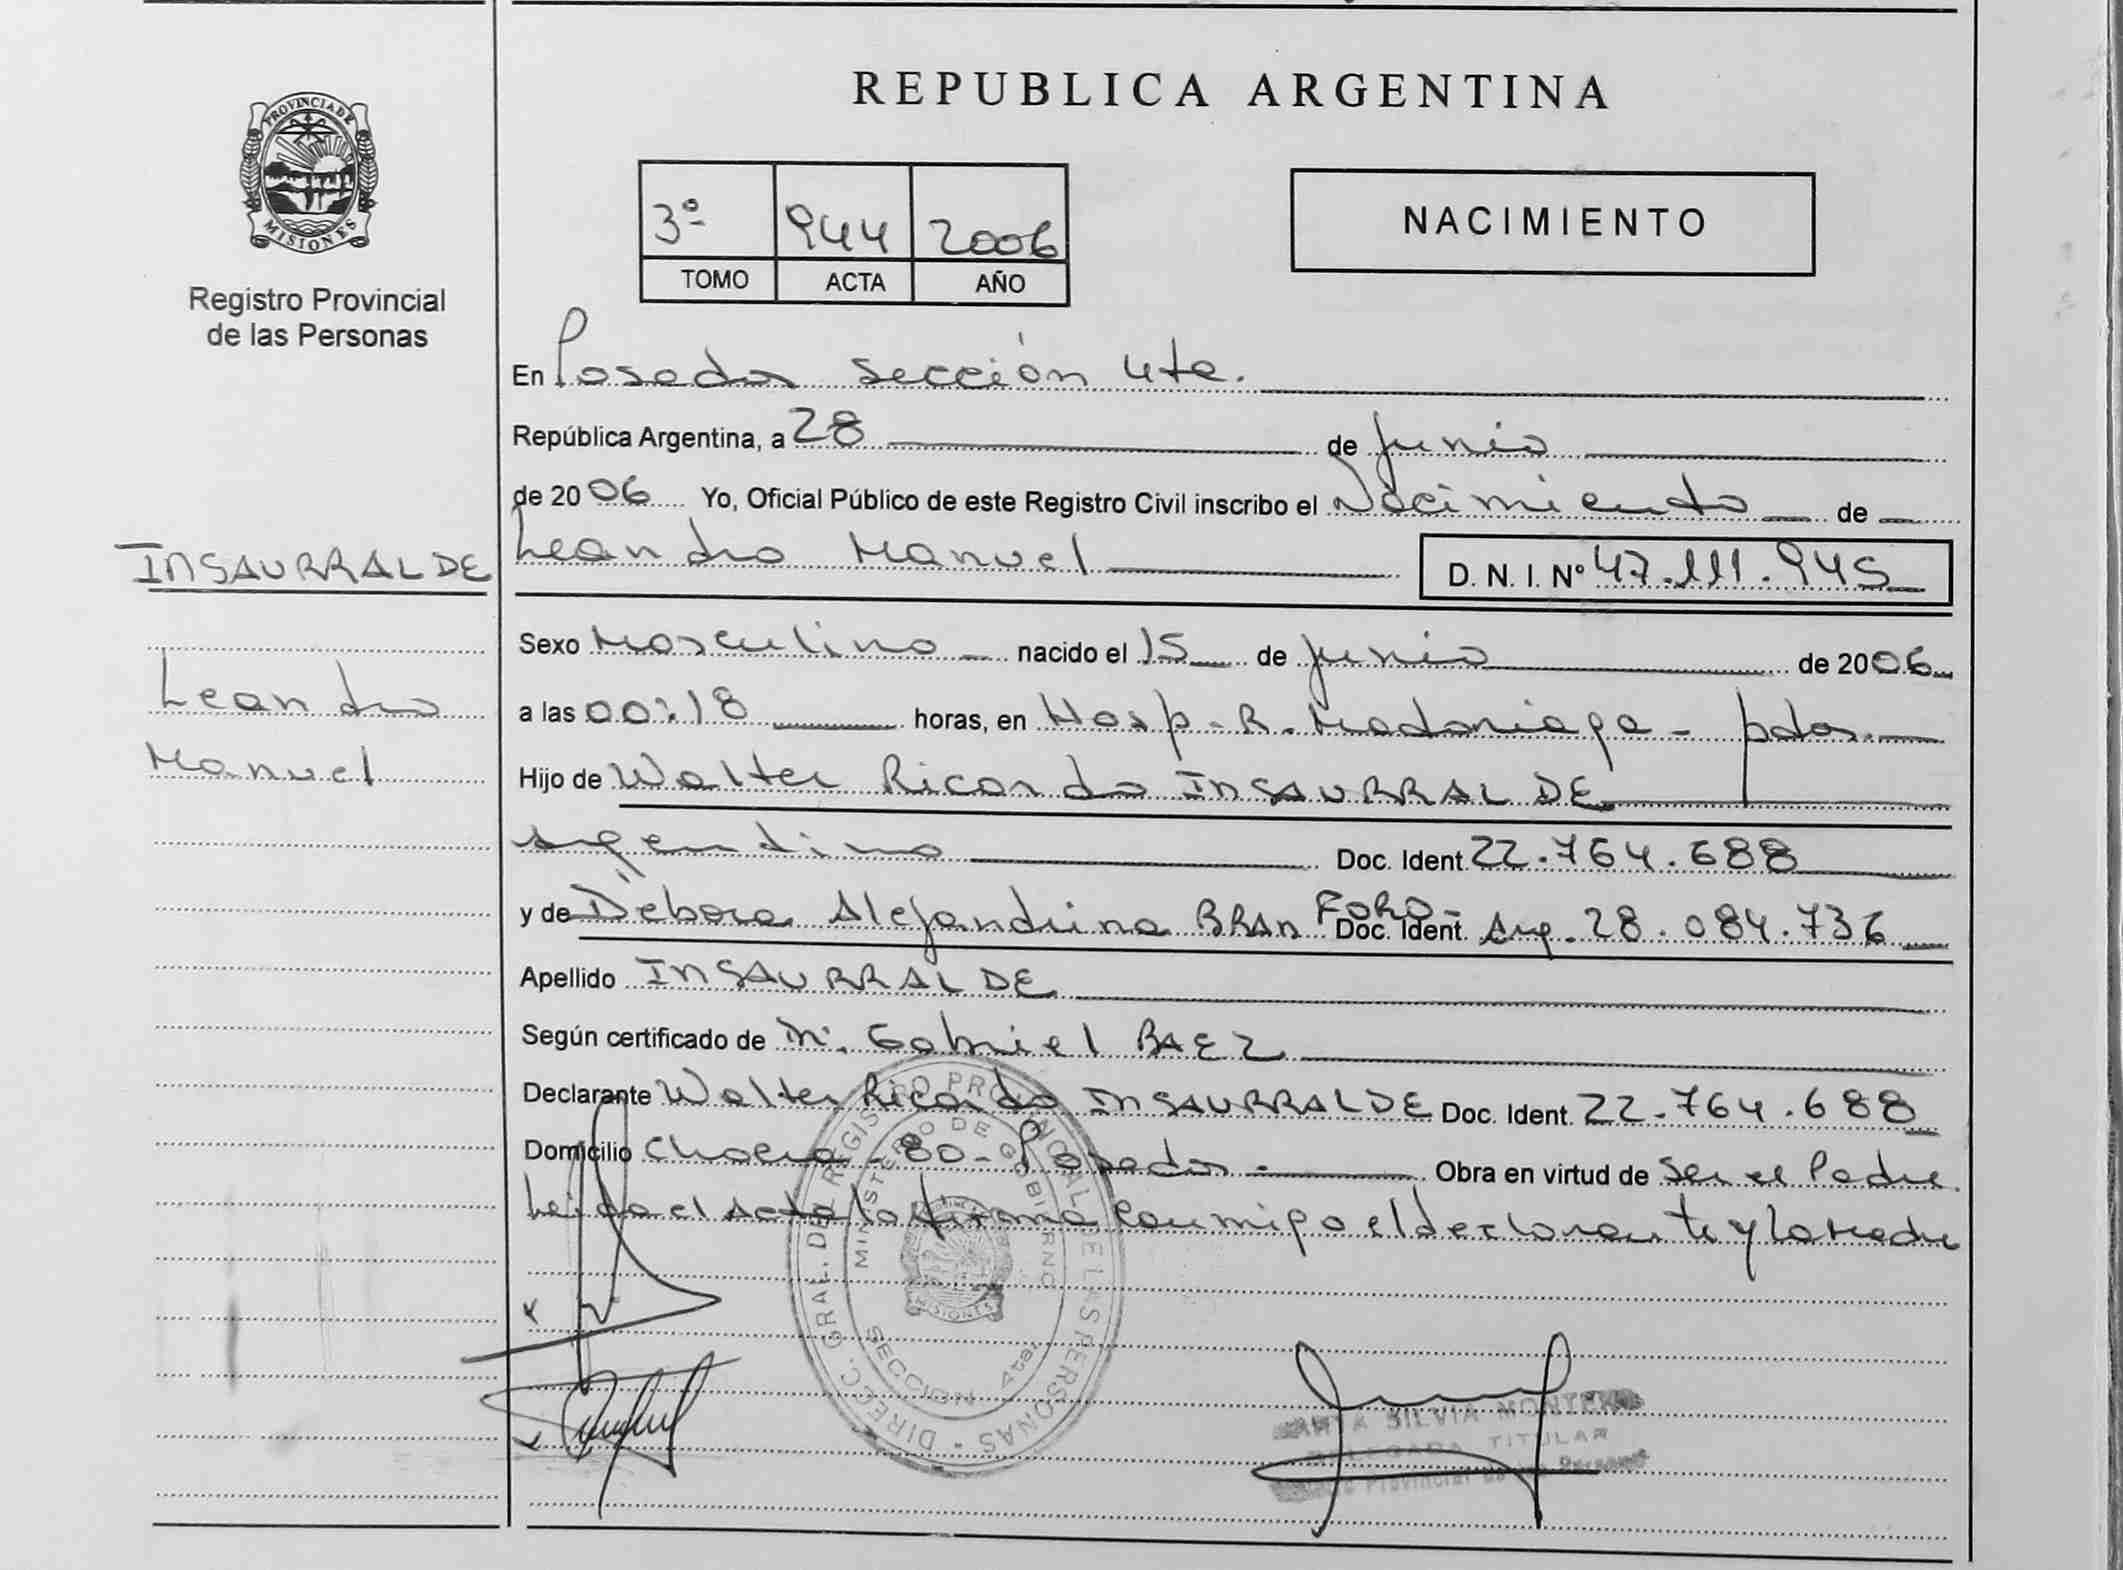 REPUBLICA ARGENTINA
PROVINCIA DE
MISIONES
Registro Provincial
de las Personas
3º 944 2006
TOMO ACTA AÑO
NACIMIENTO
En Posadas sección 4ta.
República Argentina, a 28 de Junio
de 2006 Yo, Oficial Público de este Registro Civil inscribo el Nacimiento de
Leandro Manuel D. N. I. Nº 47.111.945
INSAURRALDE
Leandro
Manuel
Sexo Masculino nacido el 15 de Junio de 2006
a las 00:18 horas, en Hosp. R. Madariaga - pdas.
Hijo de Walter Ricardo INSAURRALDE
argentino Doc. Ident. 22.764.688
y de Débora Alejandrina BRAN FORD- Doc. Ident. Arg. 28.084.736
Apellido INSAURRALDE
Según certificado de M. Gabriel BAEZ
Declarante Walter Ricardo INSAURRALDE Doc. Ident. 22.764.688
Domicilio 80 - Posadas. Obra en virtud de ser el Padre.
Leida el Acta la firma conmigo el declarante y la Madre
DIRECC. GRAL. DEL REGISTRO PROVINCIAL DE LAS PERSONAS
MINISTERIO DE GOBIERNO
MISIONES
SECCION 4ta.
SILVIA MONTERO
DELEGADA TITULAR
Provincial de las Personas